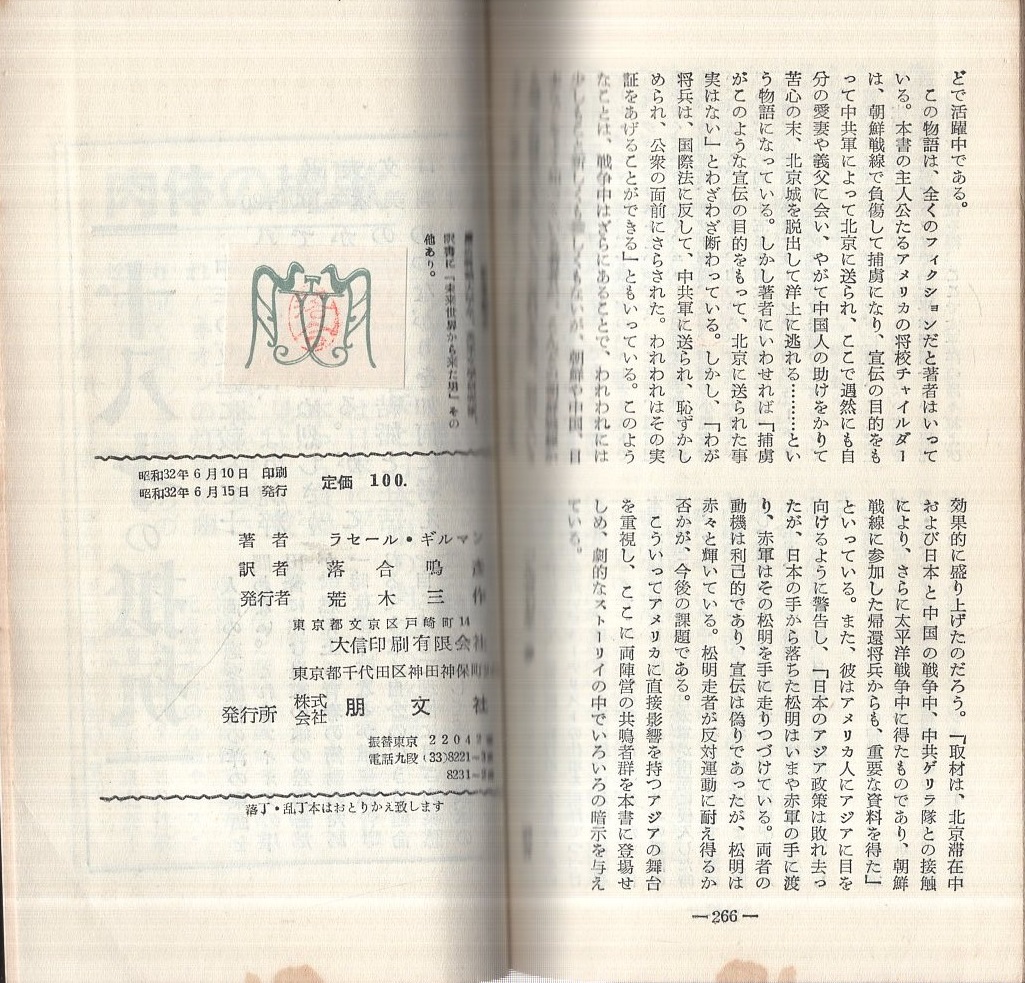 どで活躍中である。
この物語は、全くのフィクションだと著者はいって
いる。本書の主人公たるアメリカの将校チャイルダー
は、朝鮮戦線で負傷して捕虜になり、宣伝の目的をも
って中共軍によって北京に送られ、ここで遇然にも自
分の愛妻や義父に会い、やがて中国人の助けをかりて
苦心の末、北京城を脱出して洋上に逃れる………とい
う物語になっている。しかし著者にいわせれば「捕虜
がこのような宣伝の目的をもって、北京に送られた事
実はない」とわざわざ断わっている。しかし、「わが
将兵は、国際法に反して、中共軍に送られ、恥ずかし
められ、公衆の面前にさらされた。われわれはその実
証をあげることができる」ともいっている。このよう
なことは、戦争中はざらにあることで、われわれには
朝鮮や中国、日
効果的に盛り上げたのだろう。「取材は、北京滞在中
および日本と中国の戦争中、中共ゲリラ隊との接触
により、さらに太平洋戦争中に得たものであり、朝鮮
戦線に参加した帰還将兵からも、重要な資料を得た」
といっている。また、彼はアメリカ人にアジアに目を
向けるように警告し、「日本のアジア政策は敗れ去っ
たが、日本の手から落ちた松明はいまや赤軍の手に渡
り、赤軍はその松明を手に走りつづけている。両者の
動機は利己的であり、宣伝は偽りであったが、松明は
赤々と輝いている。松明走者が反対運動に耐え得るか
否かが、今後の課題である。
こういってアメリカに直接影響を持つアジアの舞台
を重視し、ここに両陣営の共鳴者群を本書に登場せ
しめ、劇的なストーリイの中でいろいろの暗示を与え
ている。
—266—
訳書に「未来世界から来た男」その
他あり。
昭和32年6月10日 印刷
昭和32年6月15日 発行
定価 100.
著者 ラセール・ギルマン
訳者 落合鳴
発行者 荒木三作
東京都文京区戸崎町14
大信印刷有限会社
東京都千代田区神田神保町
発行所 株式会社 朋文社
振替東京 2204
電話九段(33)8221
8231
落丁・乱丁本はおとりかえ致します